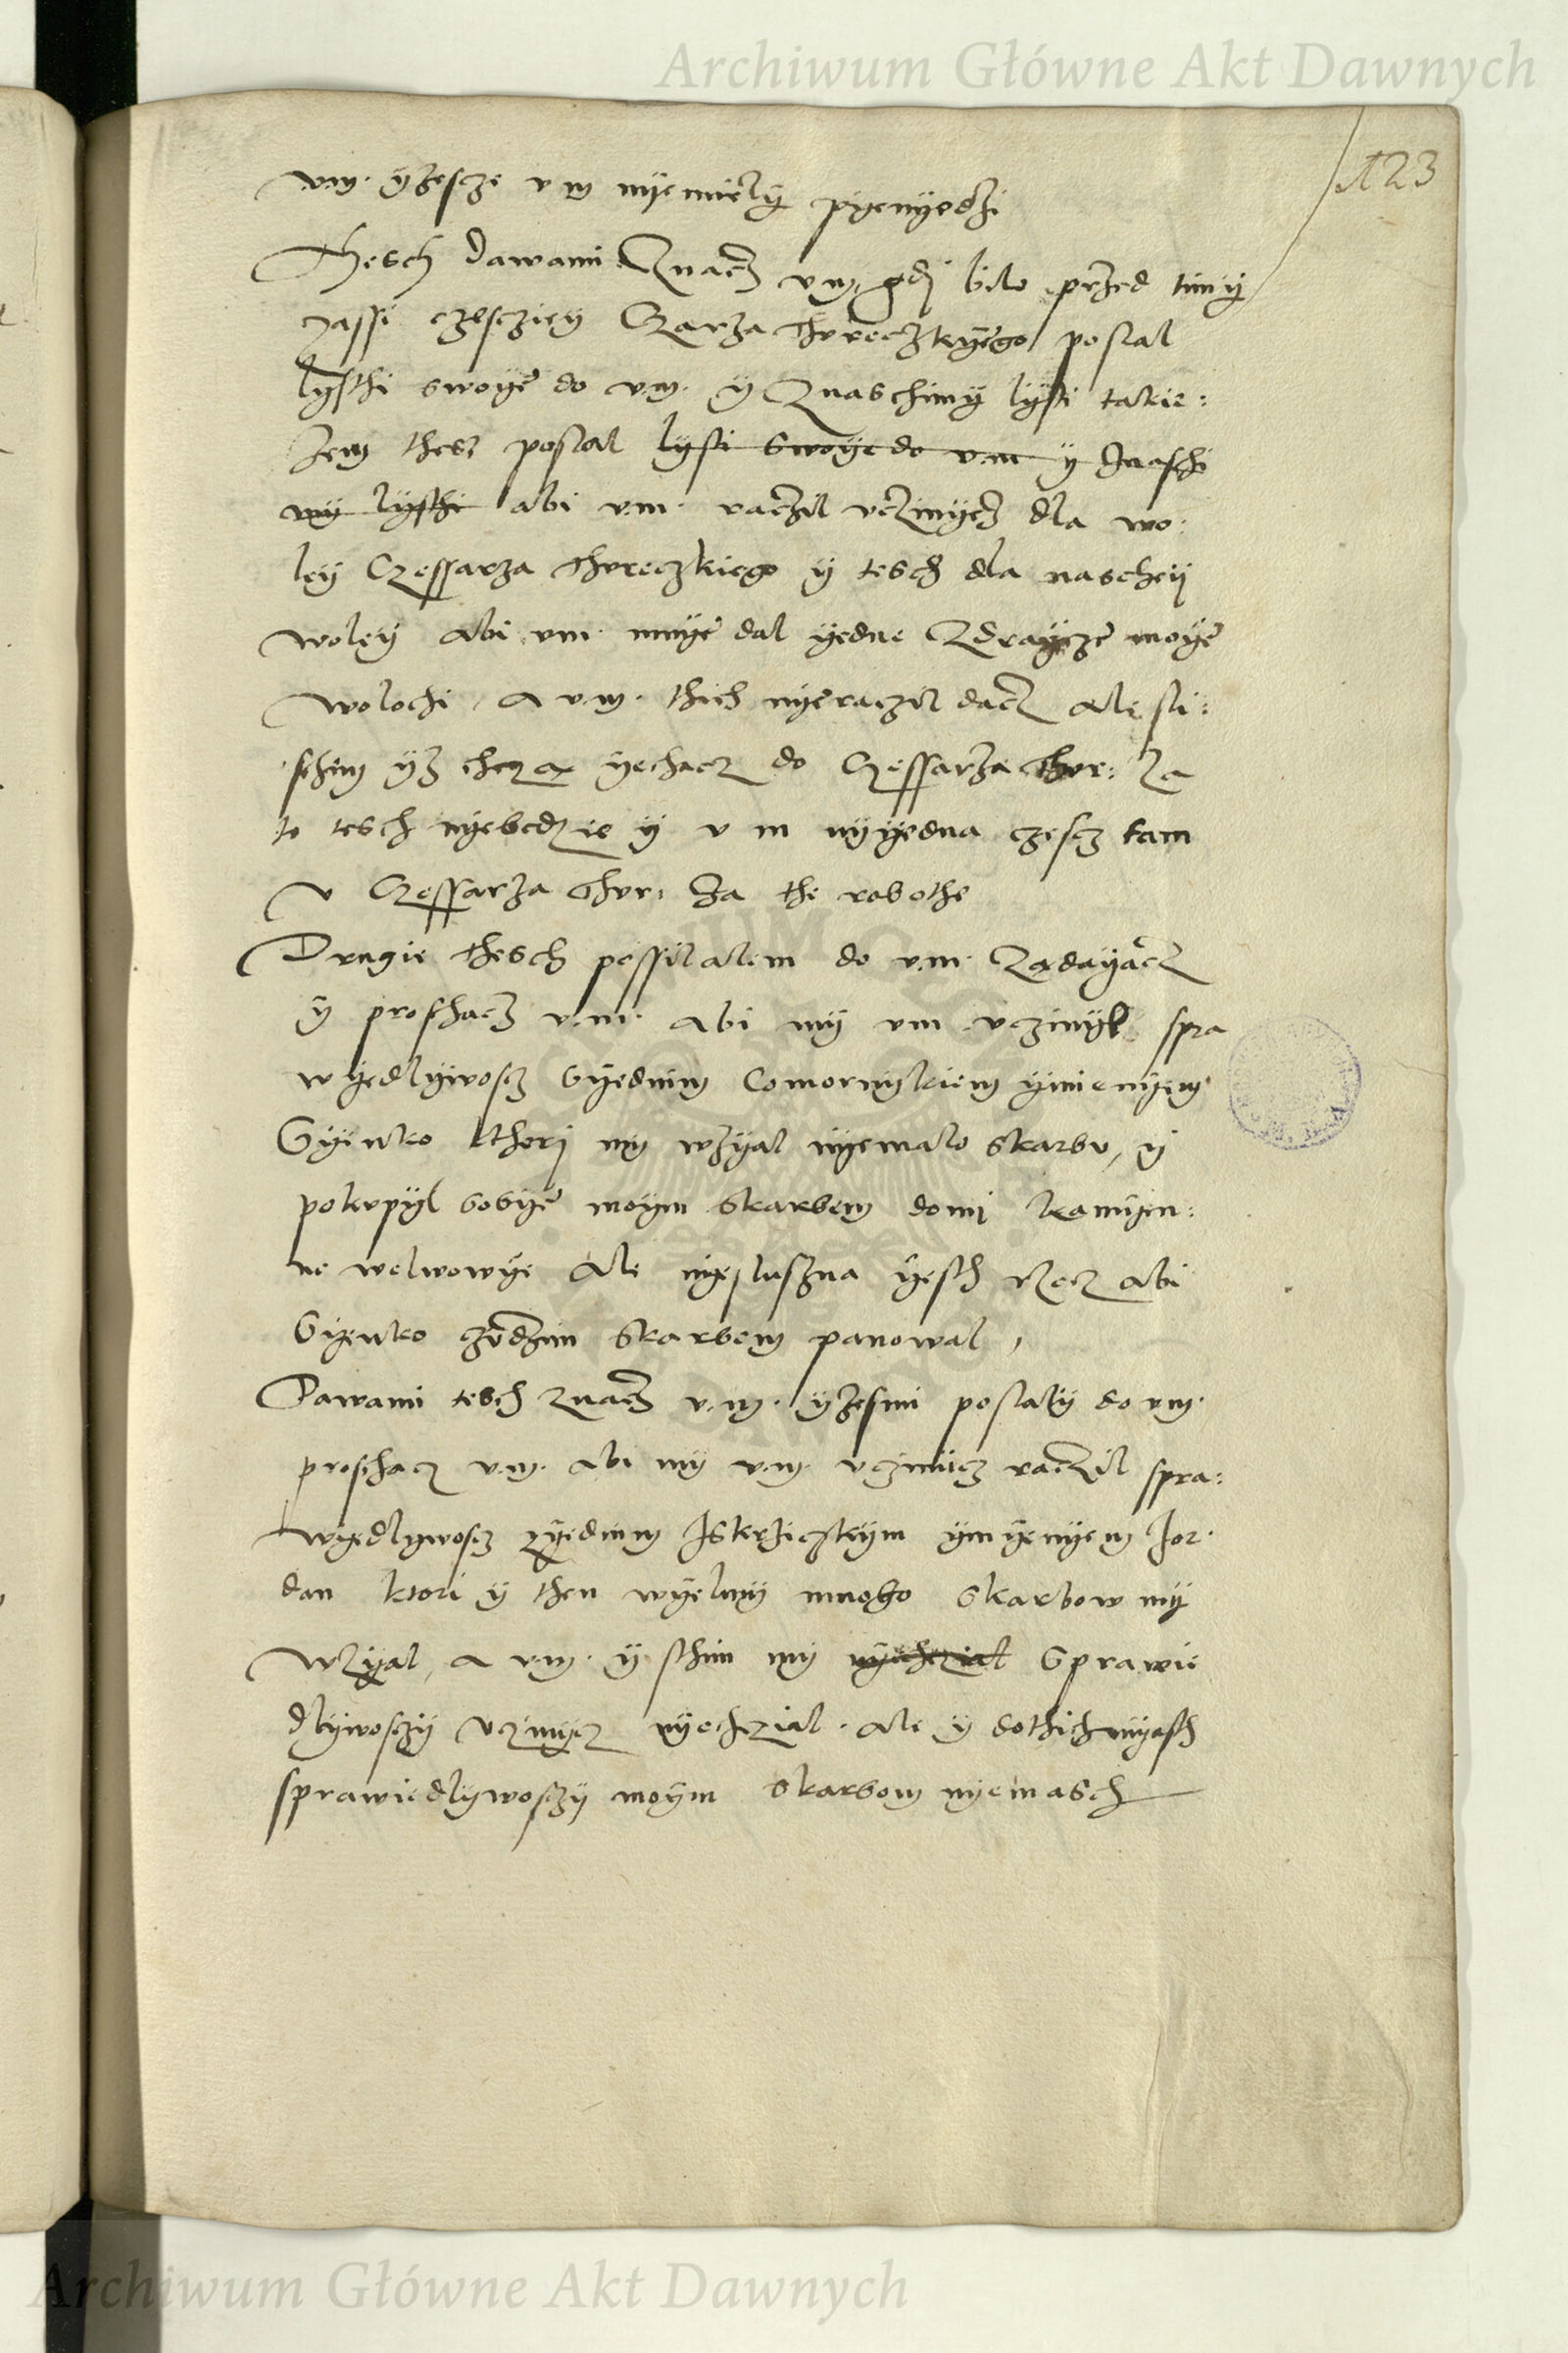 Archiwum Główne Akt Dawnych
123
v.m. ÿzescze v m nyemiely pyenyedzi
Thesch dawami Znacz v m. gdj bilo przed timy
czassi czesczien Czarza Thvreczkyego poslal
lysthi swoye do v.m. y Znaschimy lysti takie:
zem thesz poslal lysti swoye do v.m y Znaschi
my lysthi abi v.m. raczil vczinycz dla wo:
ley Czessarza Thvreczkiego y tesch dla naschey
woley abi vm. mnye dal yedne Zdraycze moye
wolochi, A v.m. thich nyeraczil dacz ale sli:
schim yz chcza yechacz do Czessarza Thvr: Za
to tesch nyebedzie y v m nyyedna czescz tam
V Czessarza Thvr: Za the robothe
Drugie thesch possilalem do v.m. Zadayacz
y proschacz v.m. abi my vm vczinyl spra
wyedlywoscz syednim Comornykiem ymienyem
Gyenko kthorj my wzyal nyemalo skarbv, y
pokvpyl sobye moym skarbem domj kamyen:
ne welwowye Ale nyesluszna yesth Recz abi
Gyenko czvdzim skarbem panowal,
Dawami tesch znacz v.m. yzesmi poslaly do vm.
proschacz v.m. abi my v.m. vczinicz raczil spra:
wyedlywoscz zyednim Iskrziczkym ymyenyem Jor.
dan ktori y then wyelmy mnoho skarbow my
wzyal, A v.m. y sthim my nyechczial Sprawie
dlywosczy vczinycz nyechczial. Ale y dothichmyasth
sprawiedlywosczy moym skarbom nyemasch
Archiwum Główne Akt Dawnych